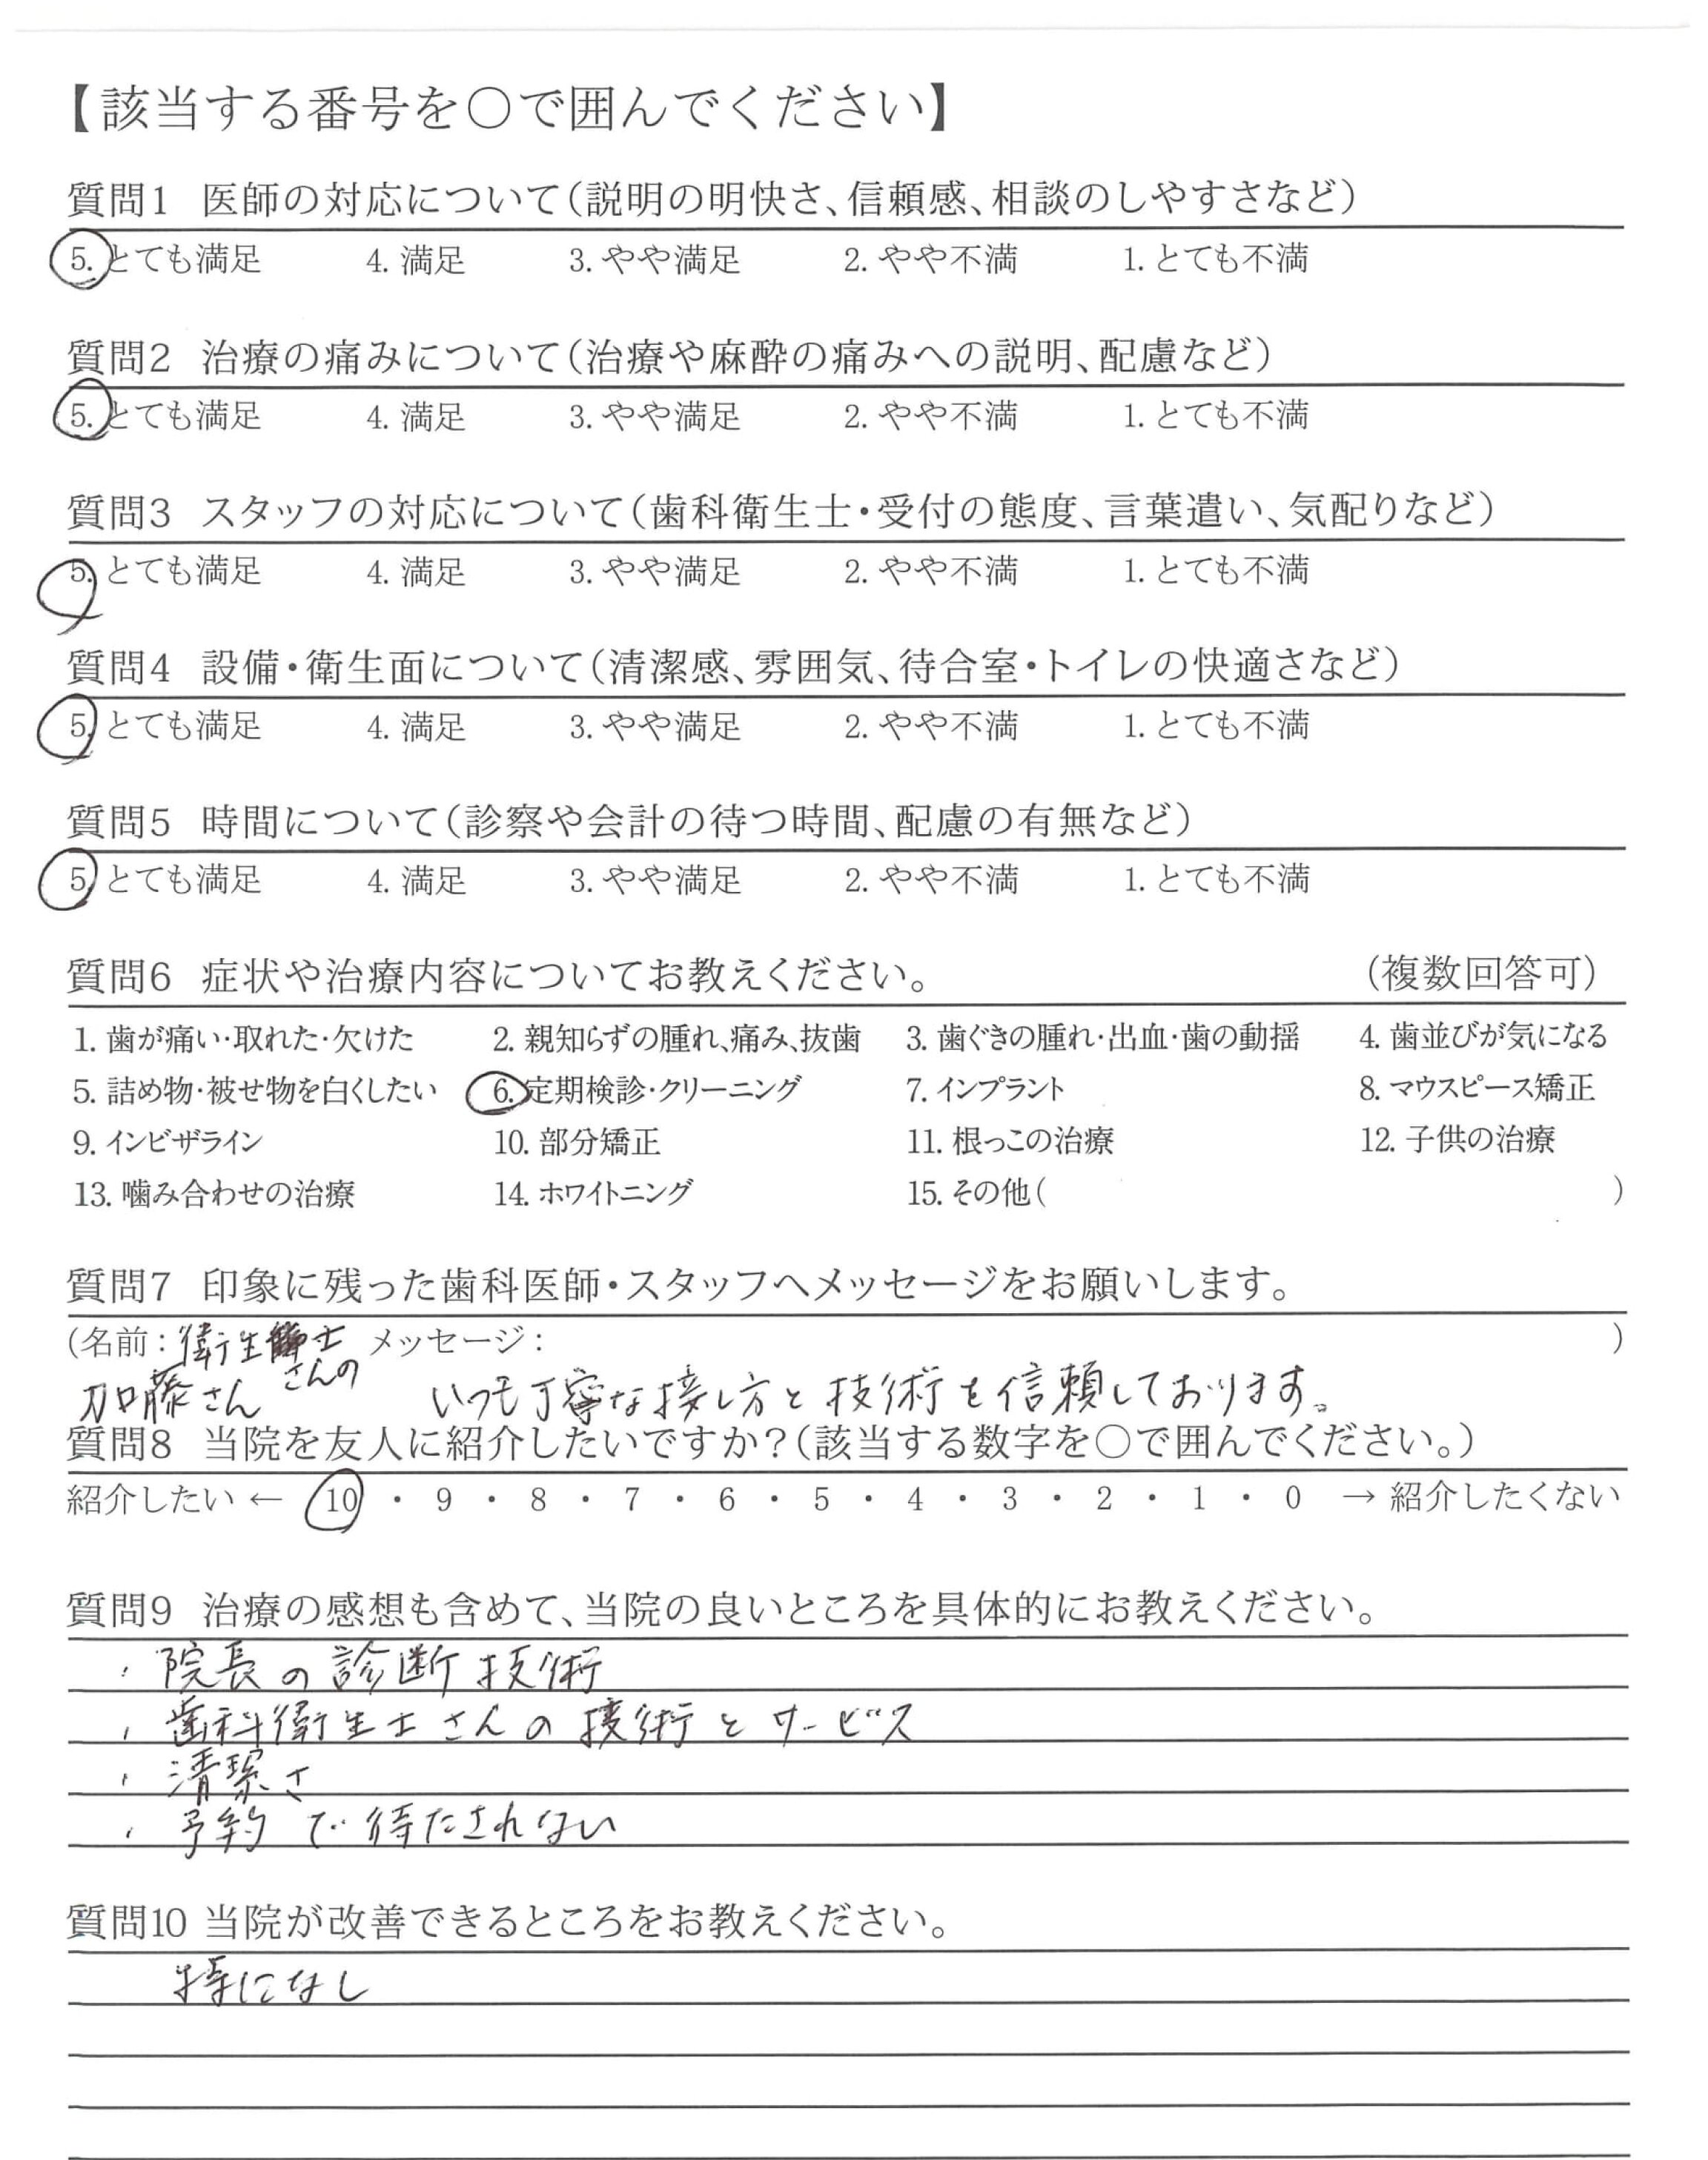 【該当する番号を○で囲んでください】
質問1 医師の対応について(説明の明快さ、信頼感、相談のしやすさなど)
5. とても満足 4. 満足 3. やや満足 2. やや不満 1. とても不満
質問2 治療の痛みについて(治療や麻酔の痛みへの説明、配慮など)
5. とても満足 4. 満足 3. やや満足 2. やや不満 1. とても不満
質問3 スタッフの対応について(歯科衛生士・受付の態度、言葉遣い、気配りなど)
5. とても満足 4. 満足 3. やや満足 2. やや不満 1. とても不満
質問4 設備・衛生面について(清潔感、雰囲気、待合室・トイレの快適さなど)
5. とても満足 4. 満足 3. やや満足 2. やや不満 1. とても不満
質問5 時間について(診察や会計の待つ時間、配慮の有無など)
5. とても満足 4. 満足 3. やや満足 2. やや不満 1. とても不満
質問6 症状や治療内容についてお教えください。 (複数回答可)
1. 歯が痛い・取れた・欠けた 2. 親知らずの腫れ、痛み、抜歯 3. 歯ぐきの腫れ・出血・歯の動揺 4. 歯並びが気になる
5. 詰め物・被せ物を白くしたい 6. 定期検診・クリーニング 7. インプラント 8. マウスピース矯正
9. インビザライン 10. 部分矯正 11. 根っこの治療 12. 子供の治療
13. 噛み合わせの治療 14. ホワイトニング 15. その他( )
質問7 印象に残った歯科医師・スタッフへメッセージをお願いします。
(名前: 衛生士 メッセージ: )
さんの
加藤さん いつも丁寧な接し方と技術を信頼しております。
質問8 当院を友人に紹介したいですか?(該当する数字を○で囲んでください。)
紹介したい ← 10 ・ 9 ・ 8 ・ 7 ・ 6 ・ 5 ・ 4 ・ 3 ・ 2 ・ 1 ・ 0 → 紹介したくない
質問9 治療の感想も含めて、当院の良いところを具体的にお教えください。
・ 院長の診断技術
・ 歯科衛生士さんの技術とサービス
・ 清潔さ
・ 予約で待たされない
質問10 当院が改善できるところをお教えください。
特になし